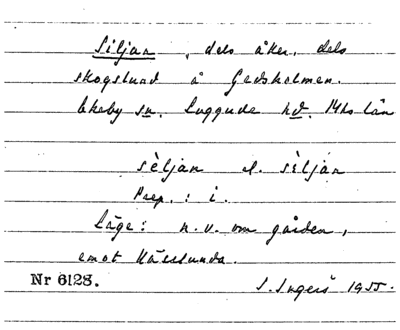 Siljan, dels åker, dels
skogslund å Gedsholmen.
Ekeby sn. Luggude hd. Mhs län
sèljan el. sèljàn
Prep.: i.
Läge: n.v. om gården,
emot Kässlunda.
Nr 6128. S. Ingers 1955.